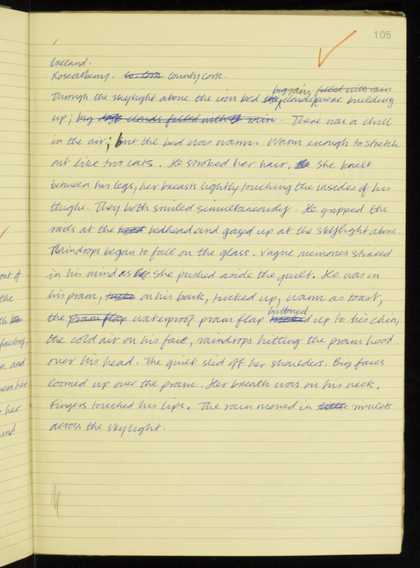 105
Ireland.
Roscarbery. County Cork.
big rain, filled with rain
Through the skylight above the iron bed clouds were building
up, big clouds filled with rain. There was a chill
in the air; but the bed was warm. Warm enough to stretch
out like two cats. He stroked her hair. She knelt
between his legs, her breasts lightly touching the insides of his
thighs. They both smiled simultaneously. He gripped the
rods at the bedhead and gazed up at the skylight above.
Raindrops began to fall on the glass. Vague memories stirred
in his mind as she pushed aside the quilt. He was in
his pram, on his back, tucked up, warm as toast,
buttoned
the pram flap waterproof pram flap up to his chin,
the cold air on his face, raindrops hitting the pram hood
over his head. The quilt slid off her shoulders. Big faces
loomed up over the pram. Her breath was on his neck.
Fingers touched his lips. The rain moved in rivulets
across the skylight.
out of
the
factory,
and
her
and